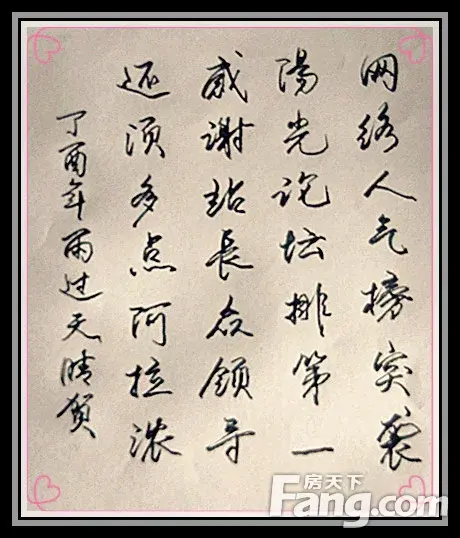 网络人气榜突袭
陽光论坛排第一
感谢站長众领导
还须多点阿拉浓
丁酉年雨过天晴贺
房天下
Fang.com